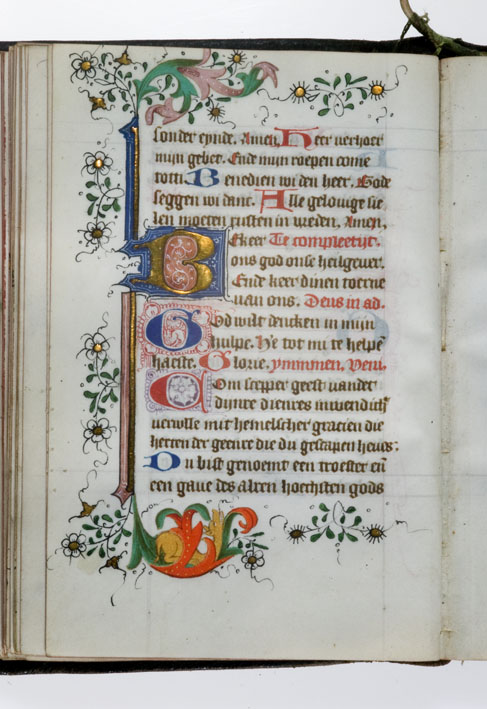 sonder eynde. Amen. Heer verhoer
mijn gebet. Ende mijn roepen come
tot ti. Benedien wi den heer. Gode
seggen wi danc. Alle gelovige sie
len moeten rusten in vreden. Amen.
Bekeer Te compleetyt.
ons god onse heilgever.
Ende keer dinen toerne
van ons. Deus in ad.
God wilt dencken in mijn
hulpe. He tot mi te helpē
haeste. Glorie. ymmmen. Veni.
Com scepper geest vander
dijnre dienres inwendich
vervolle mit hemelscher gracien die
herten der geenre die du gescapen heves.
Du bist genoemt een troester eñ
een gave des alren hoechsten gods